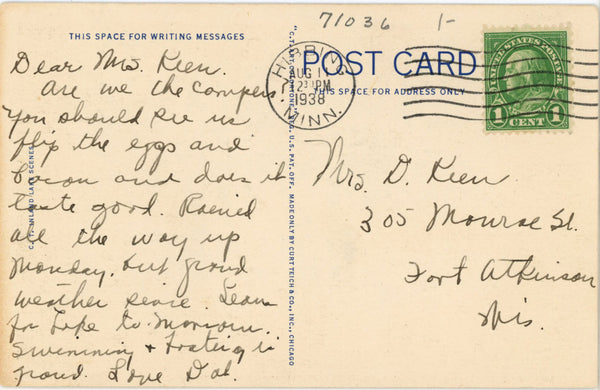 71036 1-
THIS SPACE FOR WRITING MESSAGES
POST CARD
THIS SPACE FOR ADDRESS ONLY
HIBBING
AUG 1
12 30 PM
1938
MINN.
UNITED STATES POSTAGE
1 CENT 1
"C.T. ART-COLORTONE" REG. U.S. PAT. OFF. MADE ONLY BY CURT TEICH & CO., INC., CHICAGO
C.T. INLAND LAKE SCENES
Dear Mrs. Keen.
Are we the campers
You should see us
flip the eggs and
bacon and does it
taste good. Rained
all the way up
Monday. but grand
weather since. Leave
for
Swimming + boating is
grand. Love
Mrs. D. Keen
305 Monroe St.
Fort Atkinson
Wis.